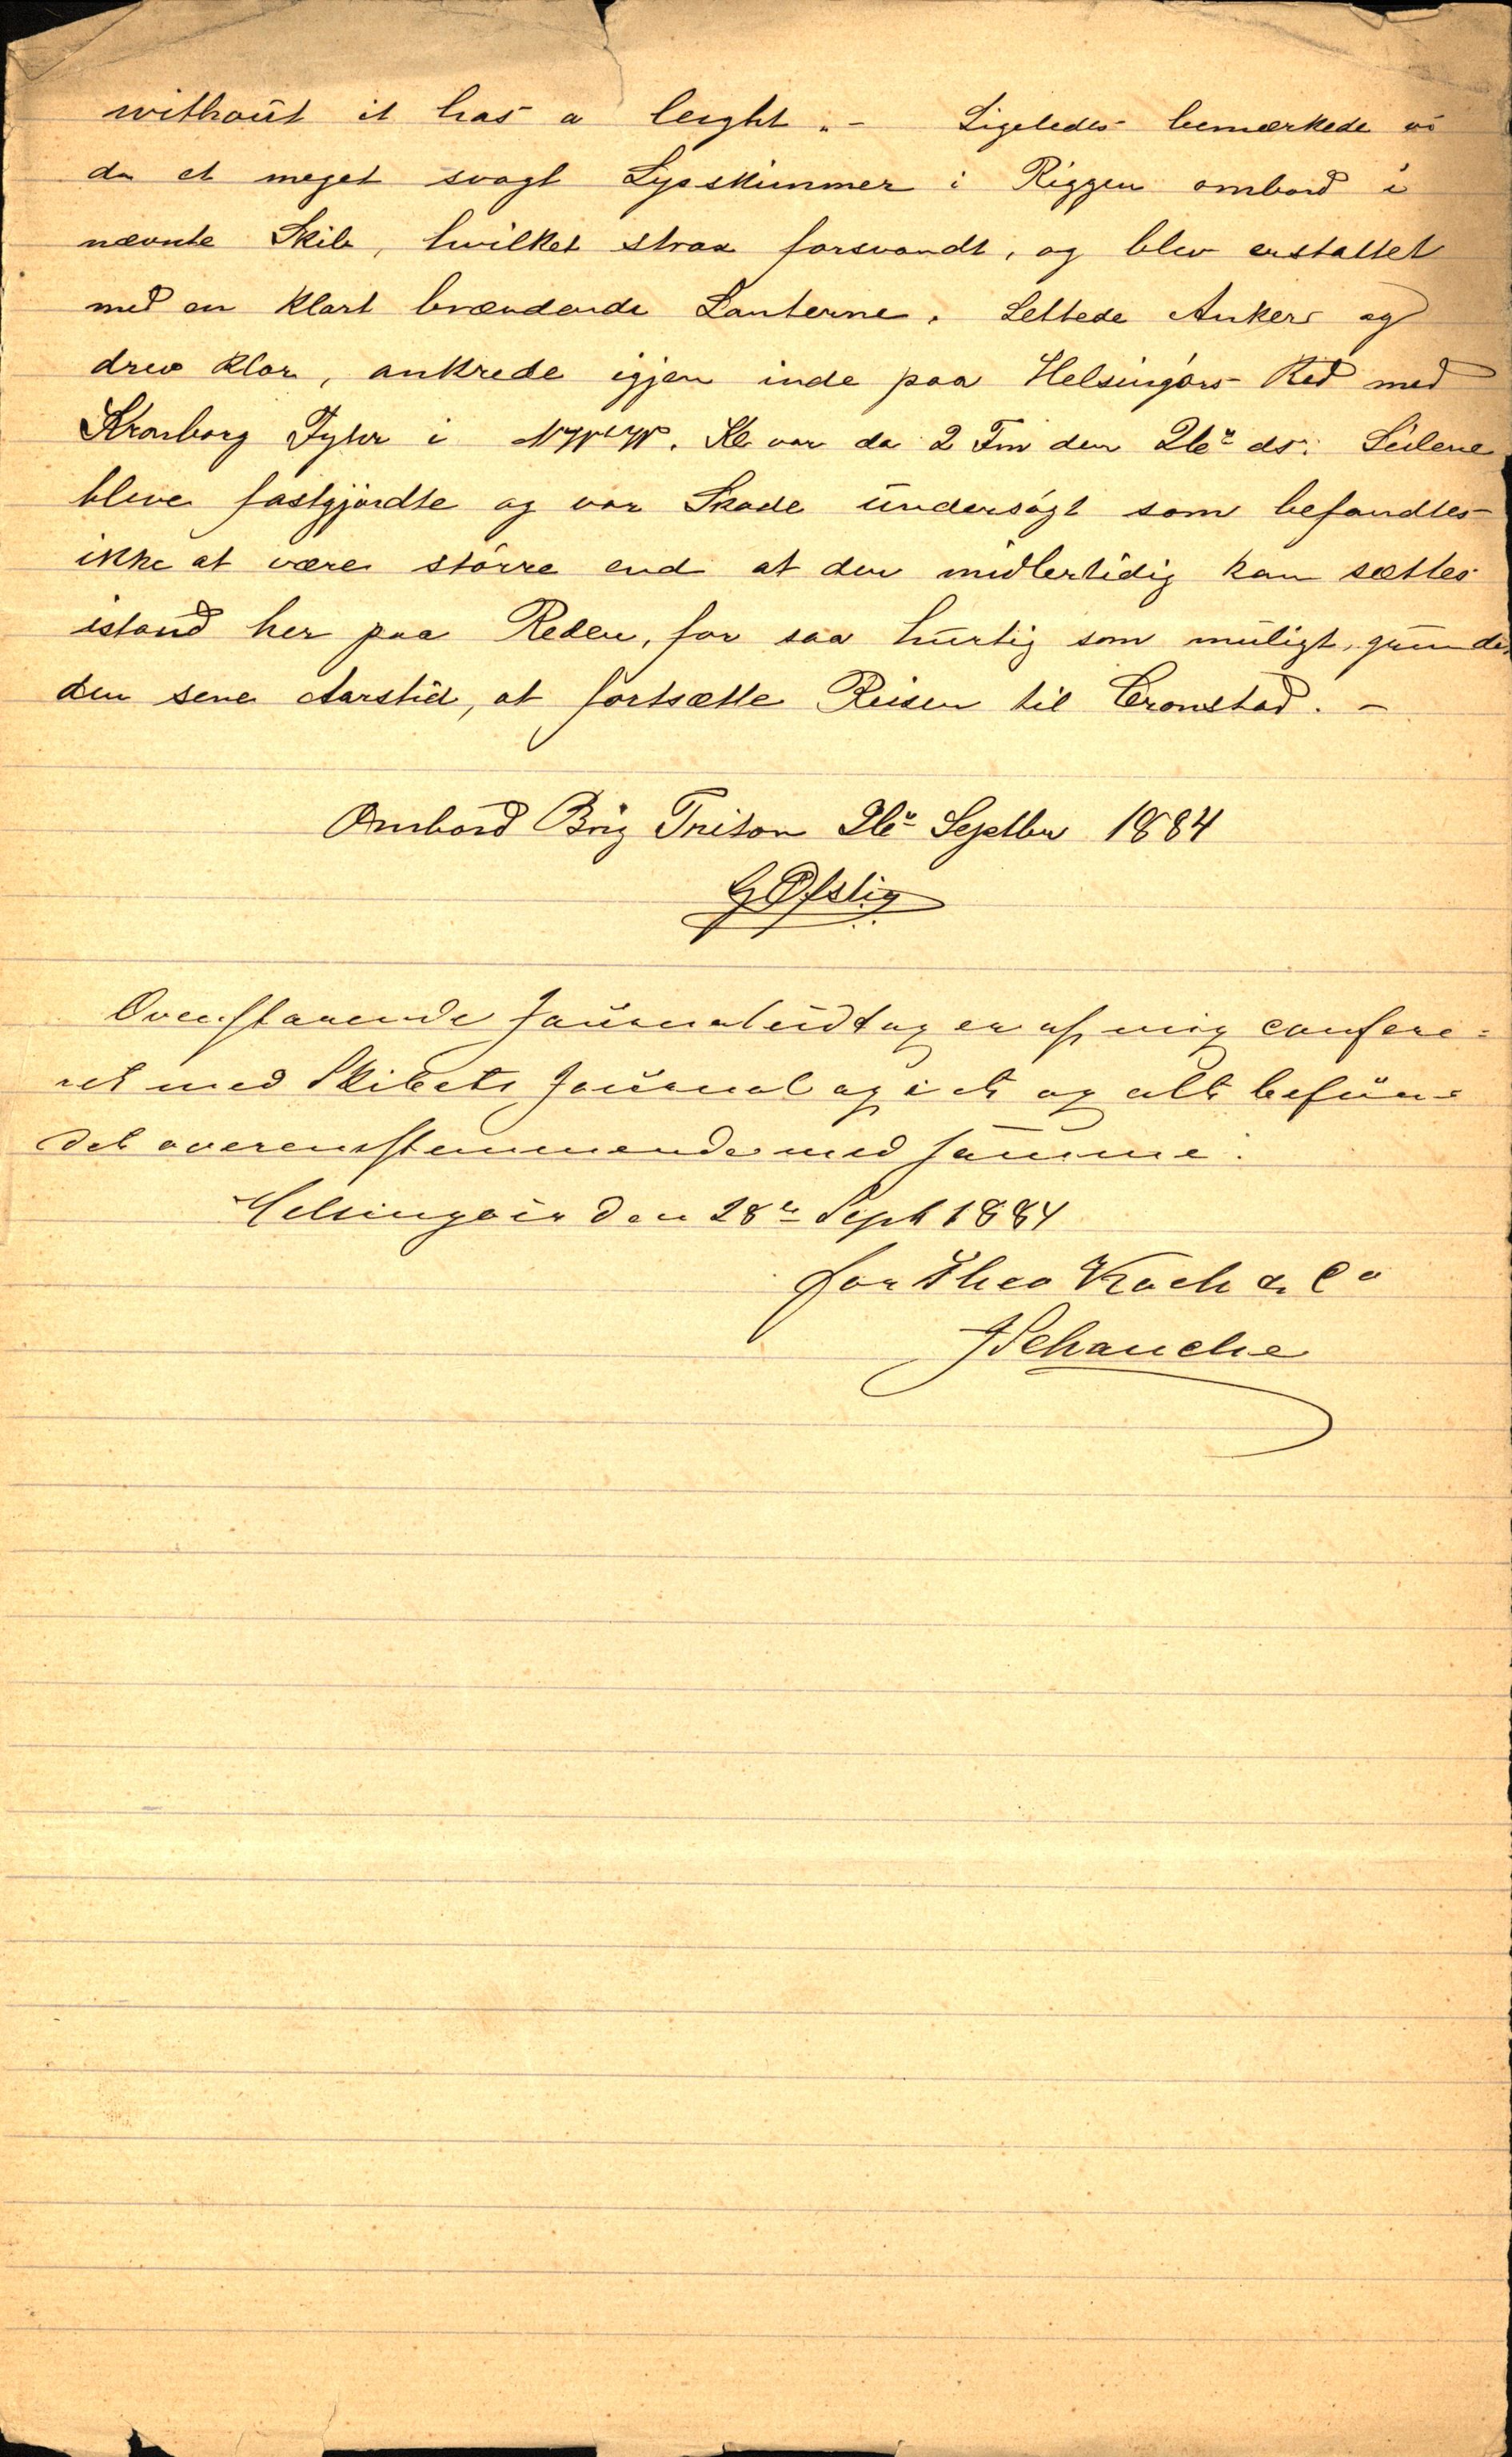 without it has a leight". - Ligeledes bemærkede vi
da et meget svagt Lysskimmer i Riggen ombord i
nævnte Skib, hvilket strax forsvandt, og blev erstattet
med en klart brændende Lanterne. Lettede Anker og
drev klar, ankrede igjen inde paa Helsingörs Red med
Kronborg Fyhr i NW t W. Kl var da 2 Fm den 26de ds. Seilene
bleve fastgjordte og vor Skade undersögt som befandtes
ikke at være större end at den midlertidig kan sættes
istand her paa Reden, for saa hurtig som muligt, grundet
den sene Aarstid, at fortsætte Reisen til Cronstad. -
Ombord Brig Triton 26de Septbr 1884
G Ofstig
Ovenstaaende Journaludtog er af mig confere=
ret med Skibets Journal og i et og alt befun=
det overensstemmende med samme.
Helsingör den 28de Sept 1884
for Theo Koch & Co
J Schanche